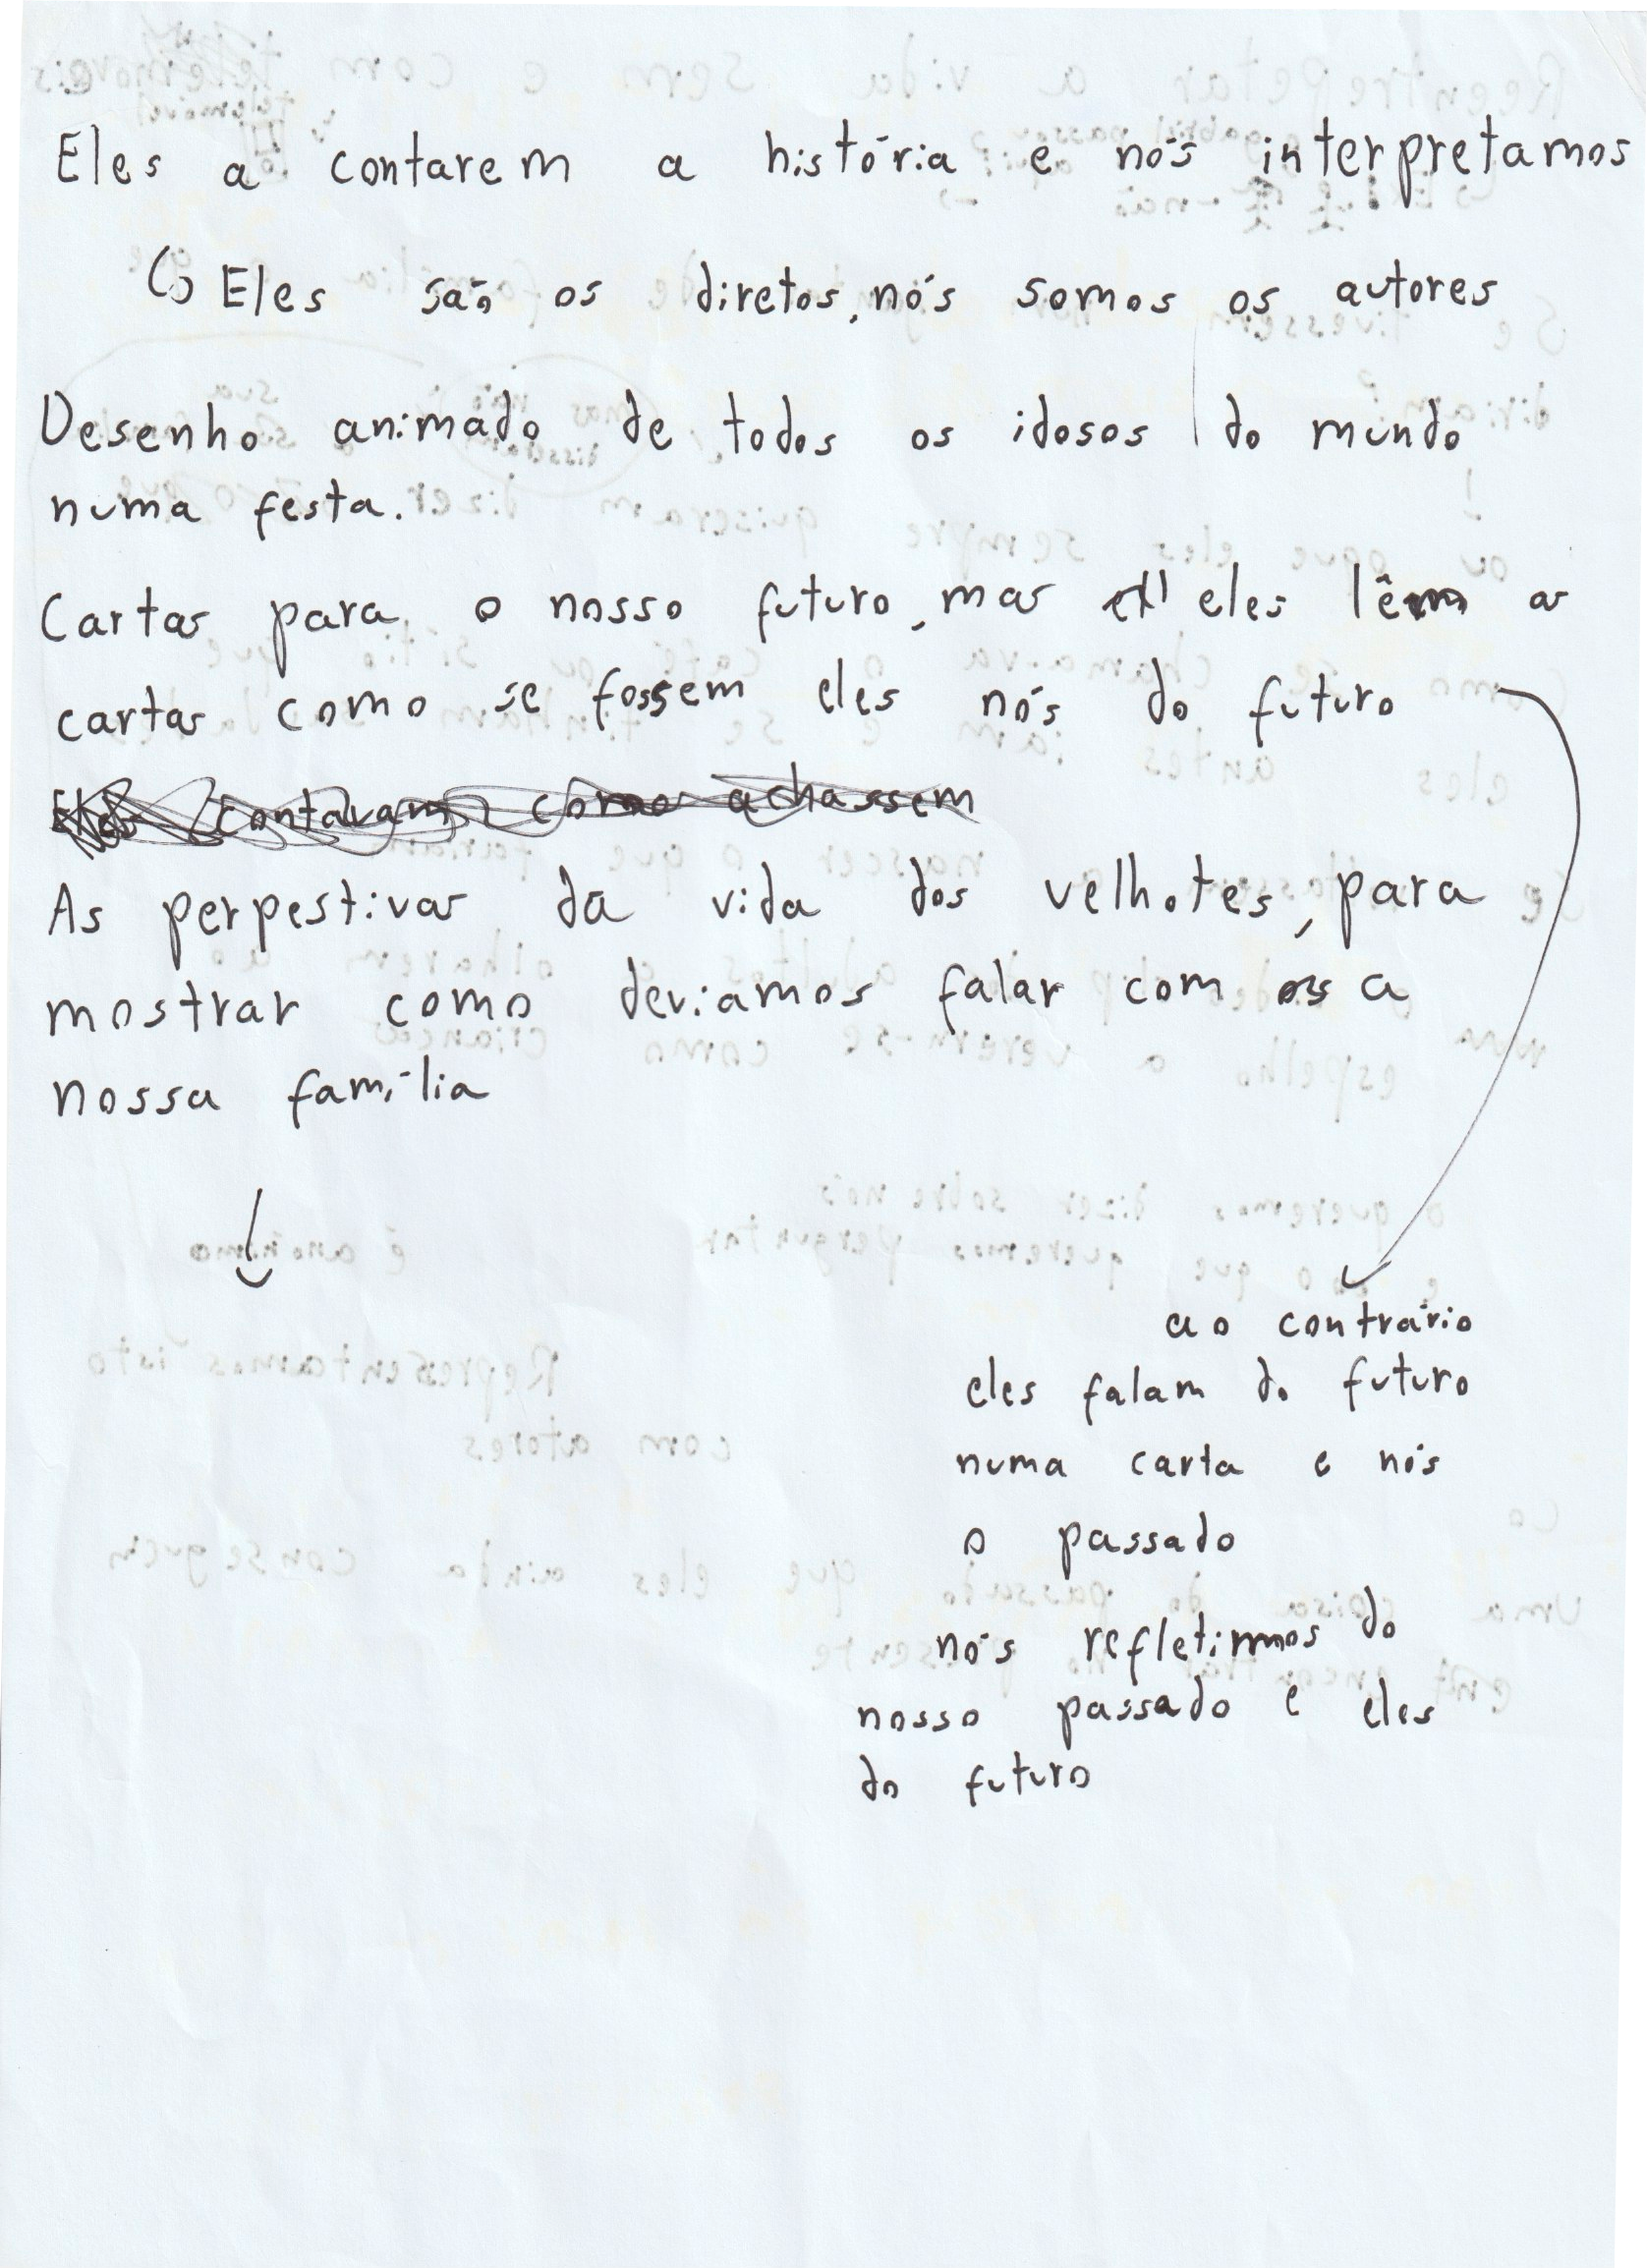 Eles a contarem a história e nós interpretamos
↳ Eles são os diretos, nós somos os autores
Desenho animado de todos os idosos do mundo
numa festa.
Cartas para o nosso futuro, mas eles lêem as
cartas como se fossem eles nós do futuro
Eles contavam como achassem
As perpestivas da vida dos velhotes, para
mostrar como deviamos falar com a
nossa família
ao contrário
eles falam do futuro
numa carta e nós
o passado
nós refletimos do
nosso passado e eles
do futuro